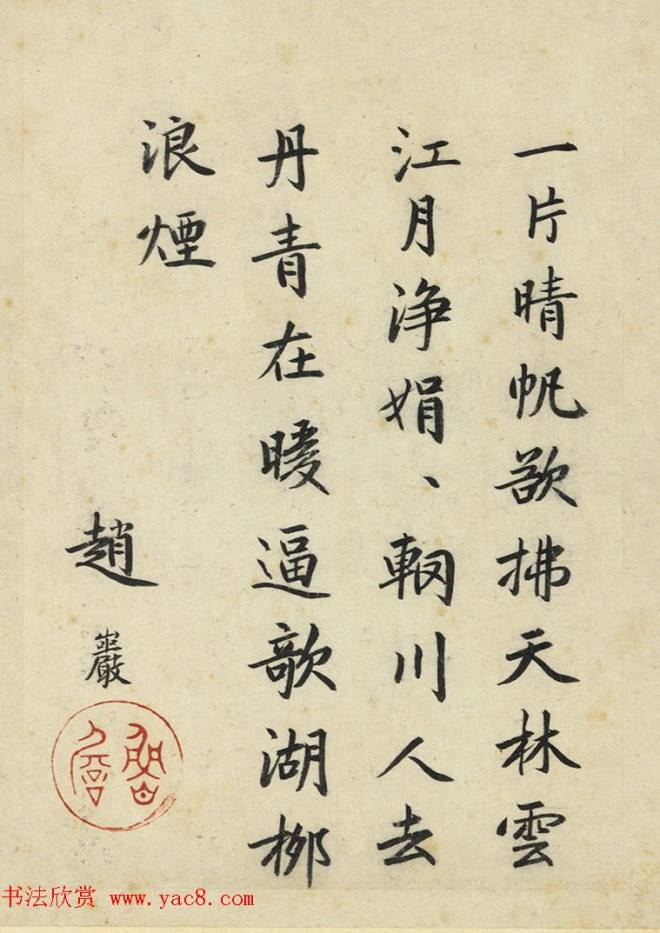 一片晴帆欲拂天林雲
江月浄娟、輞川人去
丹青在暖逼欹湖柳
浪煙
趙巖
书法欣赏 www.yac8.com